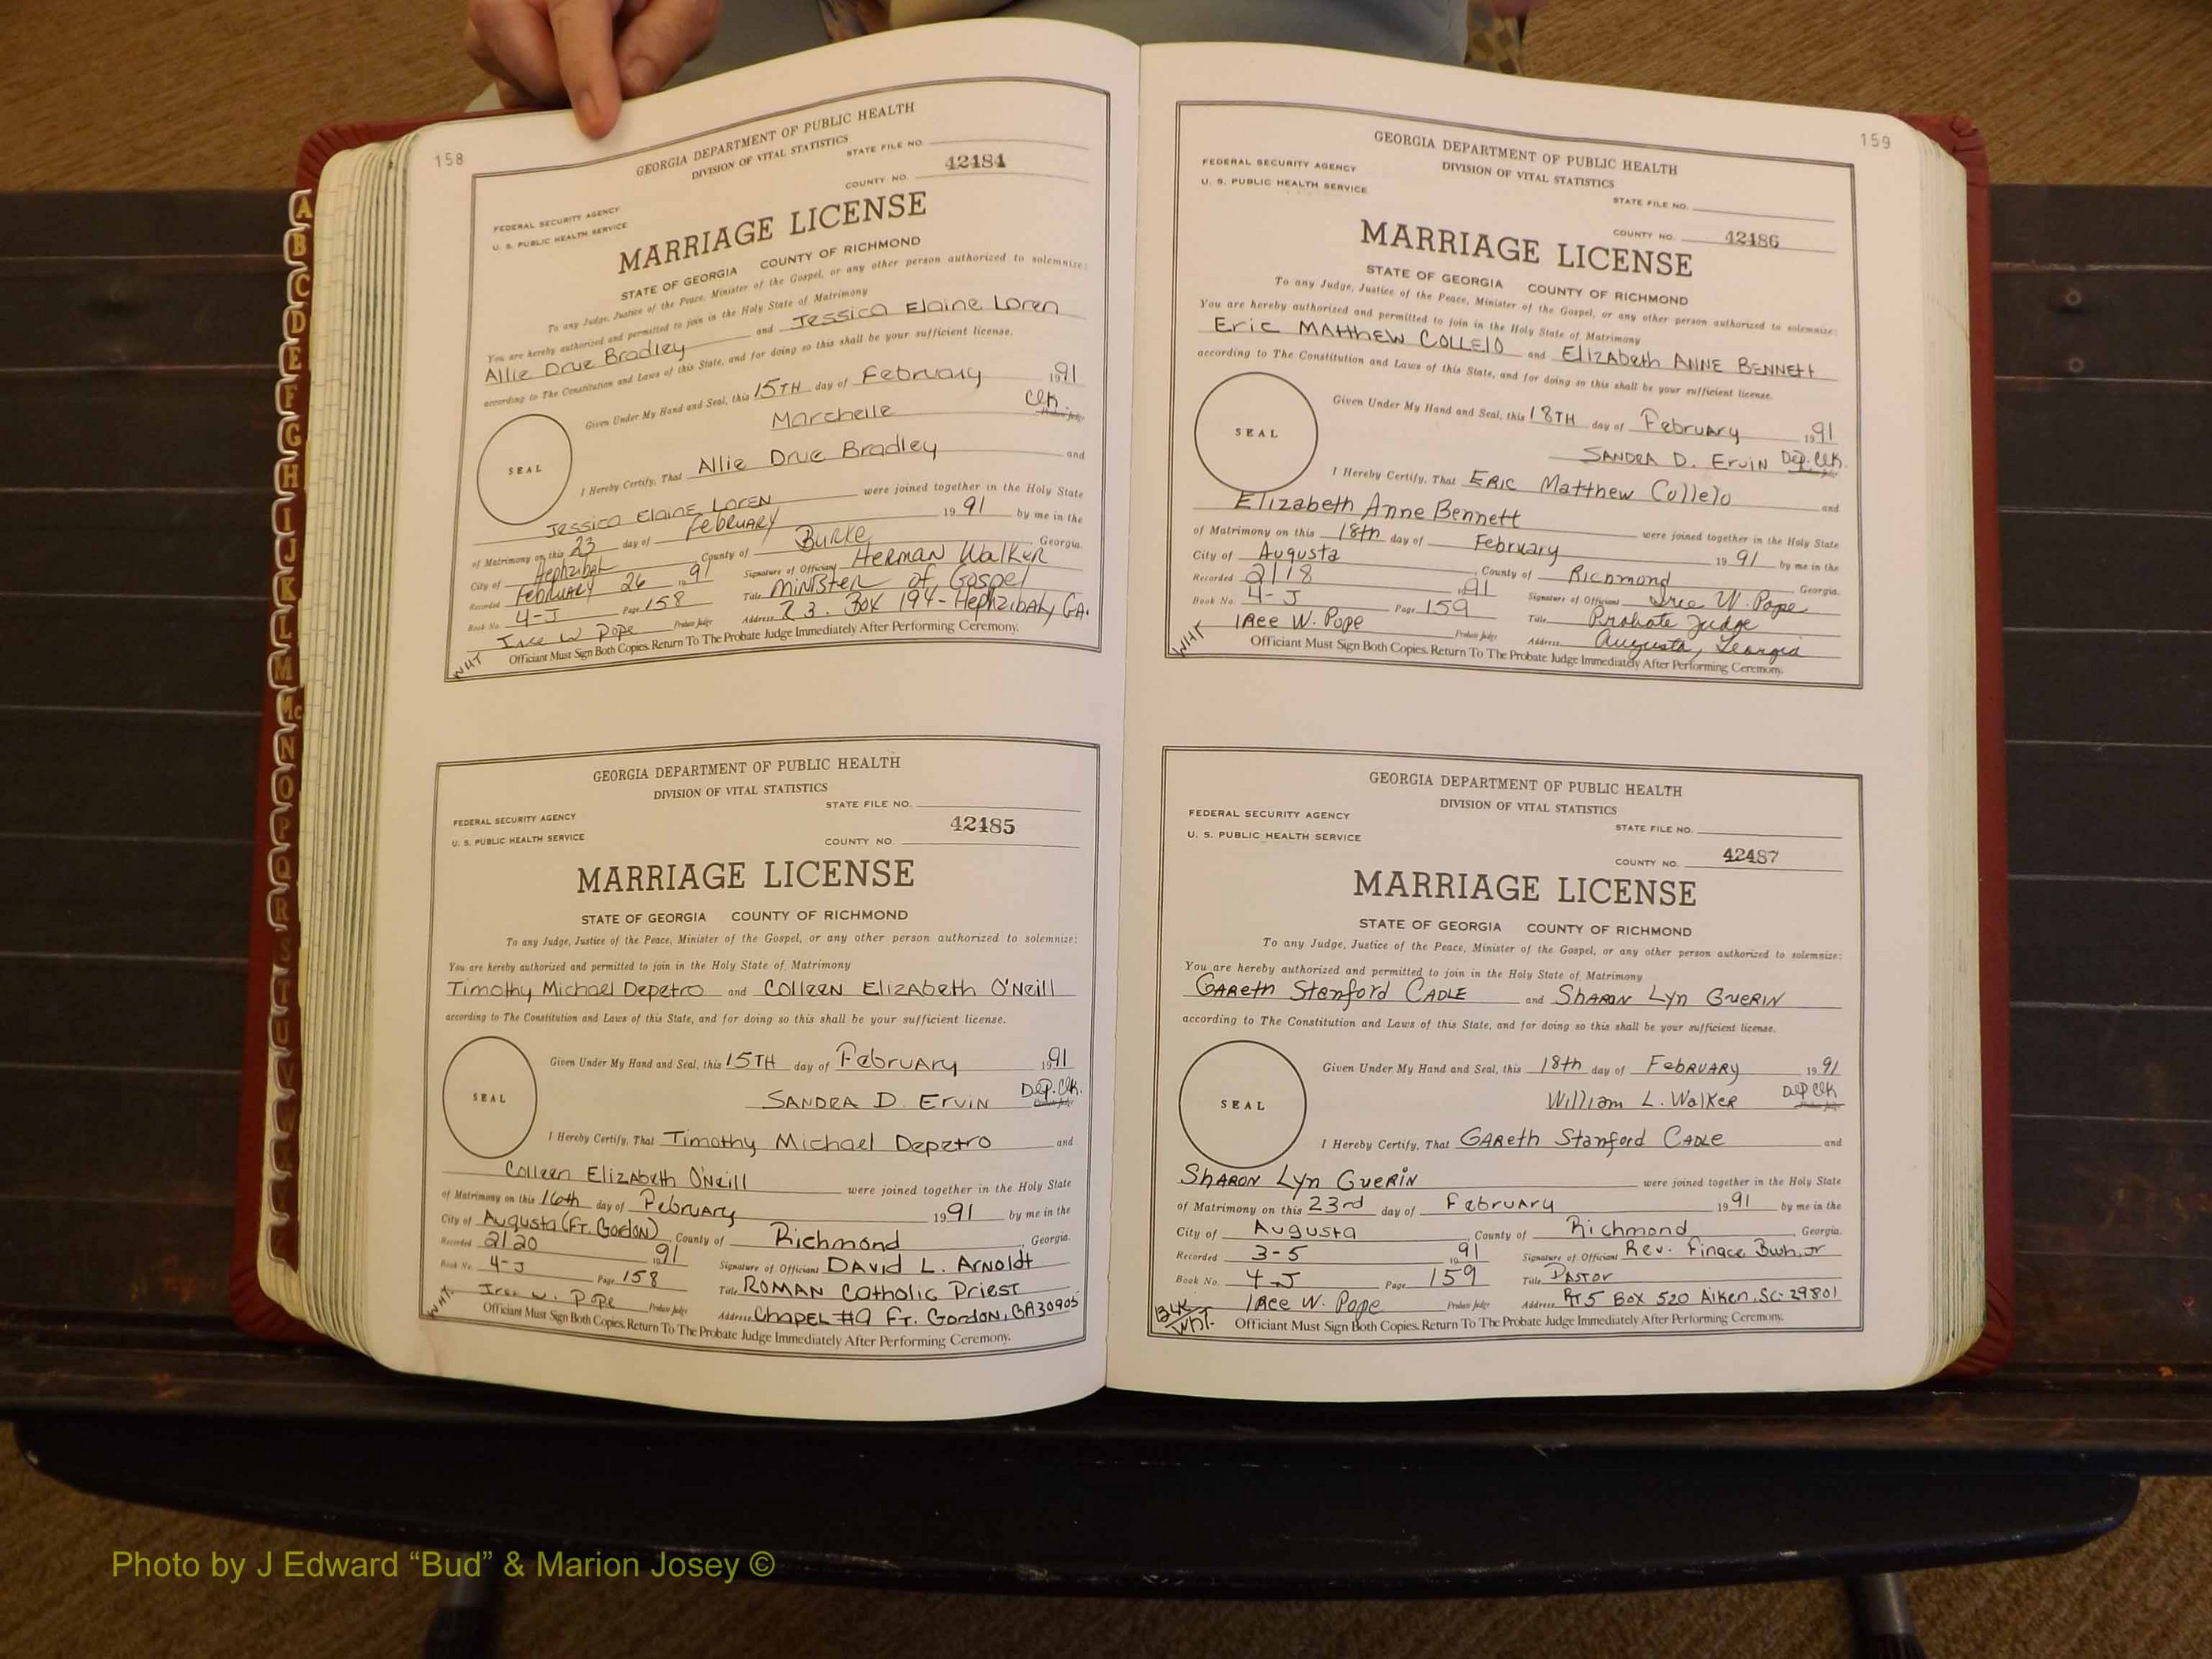 158
GEORGIA DEPARTMENT OF PUBLIC HEALTH
DIVISION OF VITAL STATISTICS
STATE FILE NO.
42484
COUNTY NO.
FEDERAL SECURITY AGENCY
U. S. PUBLIC HEALTH SERVICE
MARRIAGE LICENSE
STATE OF GEORGIA COUNTY OF RICHMOND
To any Judge, Justice of the Peace, Minister of the Gospel, or any other person authorized to solemnize:
You are hereby authorized and permitted to join in the Holy State of Matrimony
Allie Drue Bradley and Jessica Elaine Loren
according to The Constitution and Laws of this State, and for doing so this shall be your sufficient license.
Given Under My Hand and Seal, this 15TH day of February 1991
Marchelle Clk. Probate Judge
SEAL
I Hereby Certify, That Allie Drue Bradley and
Jessica Elaine LOREN were joined together in the Holy State
of Matrimony on this 23 day of February 1991 by me in the
City of Hephzibah County of Burke Georgia.
Recorded February 26 1991 Signature of Officiant HERMAN WALKER
Book No. 4-J Page 158 Title Minister of Gospel
Iree W Pope Probate Judge Address R 3. Box 194- Hephzibah, GA.
WHT Officiant Must Sign Both Copies. Return To The Probate Judge Immediately After Performing Ceremony.
GEORGIA DEPARTMENT OF PUBLIC HEALTH
DIVISION OF VITAL STATISTICS
STATE FILE NO.
FEDERAL SECURITY AGENCY
42485
U. S. PUBLIC HEALTH SERVICE
COUNTY NO.
MARRIAGE LICENSE
STATE OF GEORGIA COUNTY OF RICHMOND
To any Judge, Justice of the Peace, Minister of the Gospel, or any other person authorized to solemnize:
You are hereby authorized and permitted to join in the Holy State of Matrimony
Timothy Michael Depetro and COLLEEN ELIZABETH O'NEILL
according to The Constitution and Laws of this State, and for doing so this shall be your sufficient license.
Given Under My Hand and Seal, this 15TH day of February 1991
SANDRA D. ERVIN Dep. Clk. Probate Judge
SEAL
I Hereby Certify, That Timothy Michael Depetro and
Colleen Elizabeth O'Neill were joined together in the Holy State
of Matrimony on this 16th day of February 1991 by me in the
City of Augusta (Ft. Gordon) County of Richmond Georgia.
Recorded 2/20 1991 Signature of Officiant DAVID L. ARNOLDT
Book No. 4-J Page 158 Title ROMAN Catholic Priest
Iree W. Pope Probate Judge Address Chapel #9 Ft. Gordon, GA 30905
WHT. Officiant Must Sign Both Copies. Return To The Probate Judge Immediately After Performing Ceremony.
159
GEORGIA DEPARTMENT OF PUBLIC HEALTH
DIVISION OF VITAL STATISTICS
FEDERAL SECURITY AGENCY
U. S. PUBLIC HEALTH SERVICE
STATE FILE NO.
COUNTY NO. 42486
MARRIAGE LICENSE
STATE OF GEORGIA COUNTY OF RICHMOND
To any Judge, Justice of the Peace, Minister of the Gospel, or any other person authorized to solemnize:
You are hereby authorized and permitted to join in the Holy State of Matrimony
Eric MATTHEW COLLELO and Elizabeth ANNE BENNETT
according to The Constitution and Laws of this State, and for doing so this shall be your sufficient license.
Given Under My Hand and Seal, this 18TH day of February 1991
SANDRA D. ERVIN Dep. Clk. Probate Judge
SEAL
I Hereby Certify, That ERIC Matthew Collelo and
Elizabeth Anne Bennett were joined together in the Holy State
of Matrimony on this 18th day of February 1991 by me in the
City of Augusta County of Richmond Georgia.
Recorded 2/18 1991 Signature of Officiant Iree W. Pope
Book No. 4-J Page 159 Title Probate Judge
IRee W. Pope Probate Judge Address Augusta, Georgia
WHT Officiant Must Sign Both Copies. Return To The Probate Judge Immediately After Performing Ceremony.
GEORGIA DEPARTMENT OF PUBLIC HEALTH
DIVISION OF VITAL STATISTICS
FEDERAL SECURITY AGENCY
STATE FILE NO.
U. S. PUBLIC HEALTH SERVICE
COUNTY NO. 42487
MARRIAGE LICENSE
STATE OF GEORGIA COUNTY OF RICHMOND
To any Judge, Justice of the Peace, Minister of the Gospel, or any other person authorized to solemnize:
You are hereby authorized and permitted to join in the Holy State of Matrimony
GARETH Stanford CADLE and SHARON Lyn GUERIN
according to The Constitution and Laws of this State, and for doing so this shall be your sufficient license.
Given Under My Hand and Seal, this 18th day of February 1991
William L. Walker Dep Clk Probate Judge
SEAL
I Hereby Certify, That GARETH Stanford CADLE and
SHARON Lyn GUERIN were joined together in the Holy State
of Matrimony on this 23rd day of February 1991 by me in the
City of Augusta County of Richmond Georgia.
Recorded 3-5 1991 Signature of Officiant Rev. Jr
Book No. 4-J Page 159 Title Pastor
IRee W. Pope Probate Judge Address RT 5 Box 520 Aiken, SC 29801
BLK WHT. Officiant Must Sign Both Copies. Return To The Probate Judge Immediately After Performing Ceremony.
A
B
C
D
E
F
G
H
I
J
K
L
M
Mc
N
O
P
Q
R
S
T
U
V
W
Photo by J Edward “Bud” & Marion Josey ©